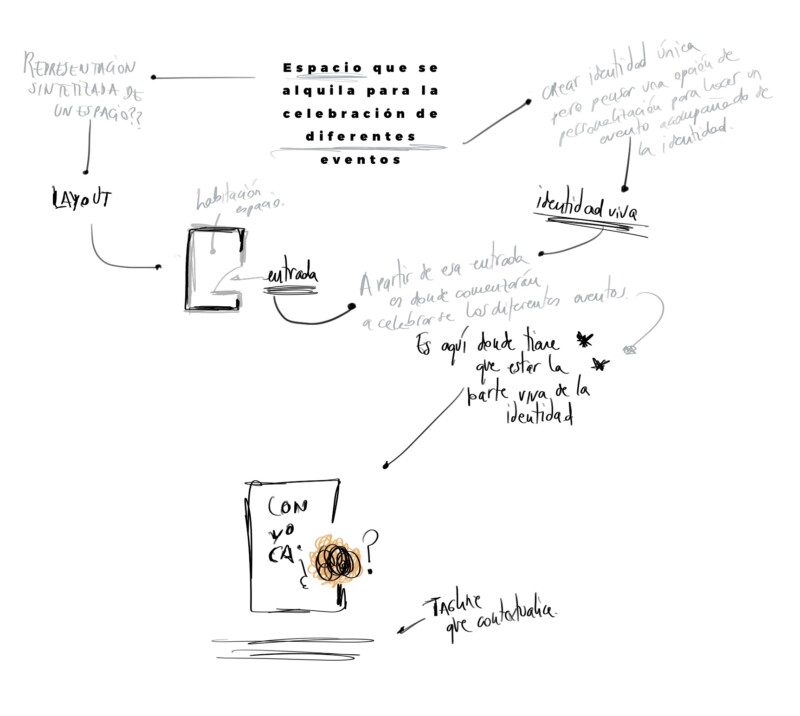 REPRESENTACIÓN
SINTETIZADA DE
UN ESPACIO??
Espacio que se
alquila para la
celebración de
diferentes
eventos
crear identidad única
pero pensar una opción de
personalización para hacer un
evento acompañado de
la identidad.
LAYOUT
habitación
espacio.
entrada
identidad viva
A partir de esa entrada
es donde comenzarán
a celebrarse los diferentes eventos.
Es aquí donde tiene
que estar la
parte viva de la
identidad
CON
VO
CA.
¿
?
TAGLINE
que contextualice.